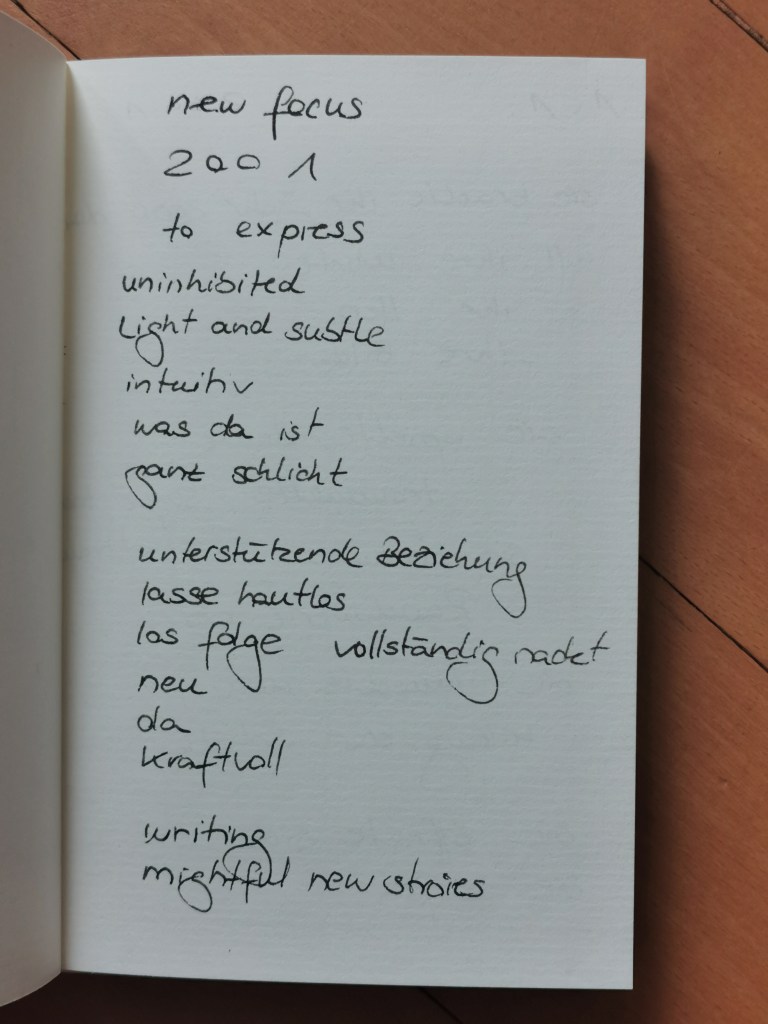 new focus
2001
to express
uninhibited
Light and subtle
intuitiv
was da ist
ganz schlicht
unterstützende Beziehung
lasse hautlos
los folge vollständig nackt
neu
da
kraftvoll
writing
mightful new stroies